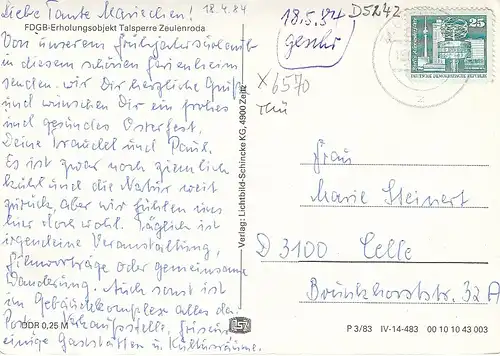 Liebe Tante Mariechen! 18.4.84
FDGB-Erholungsobjekt Talsperre Zeulenroda
Von unserem Frühjahrsurlaub
in diesem schönen Ferienheim
senden wir Dir herzliche Grüße
und wünschen Dir ein frohes
und gesundes Osterfest.
Deine Traudel und Paul.
Es ist zwar noch ziemlich
kühl und die Natur weit
zurück aber wir fühlen uns
hier doch wohl. Täglich ist
irgendeine Veranstaltung,
Filmvorträge oder gemeinsame
Wanderung. Auch sonst ist
im Gebäudekomplex alles da.
Post, Verkaufsstelle, Friseur
einige Gaststätten u. Kulturräume.
DDR 0,25 M
Verlag: Lichtbild-Schincke KG, 4900 Zeitz
18.5.84
geschr
D5242
X6570
Thü
25
DEUTSCHE DEMOKRATISCHE REPUBLIK
Frau
Marie Steinert
D 3100 Celle
Bruchkhorststr. 32A
P 3/83 IV-14-483 00 10 10 43 003